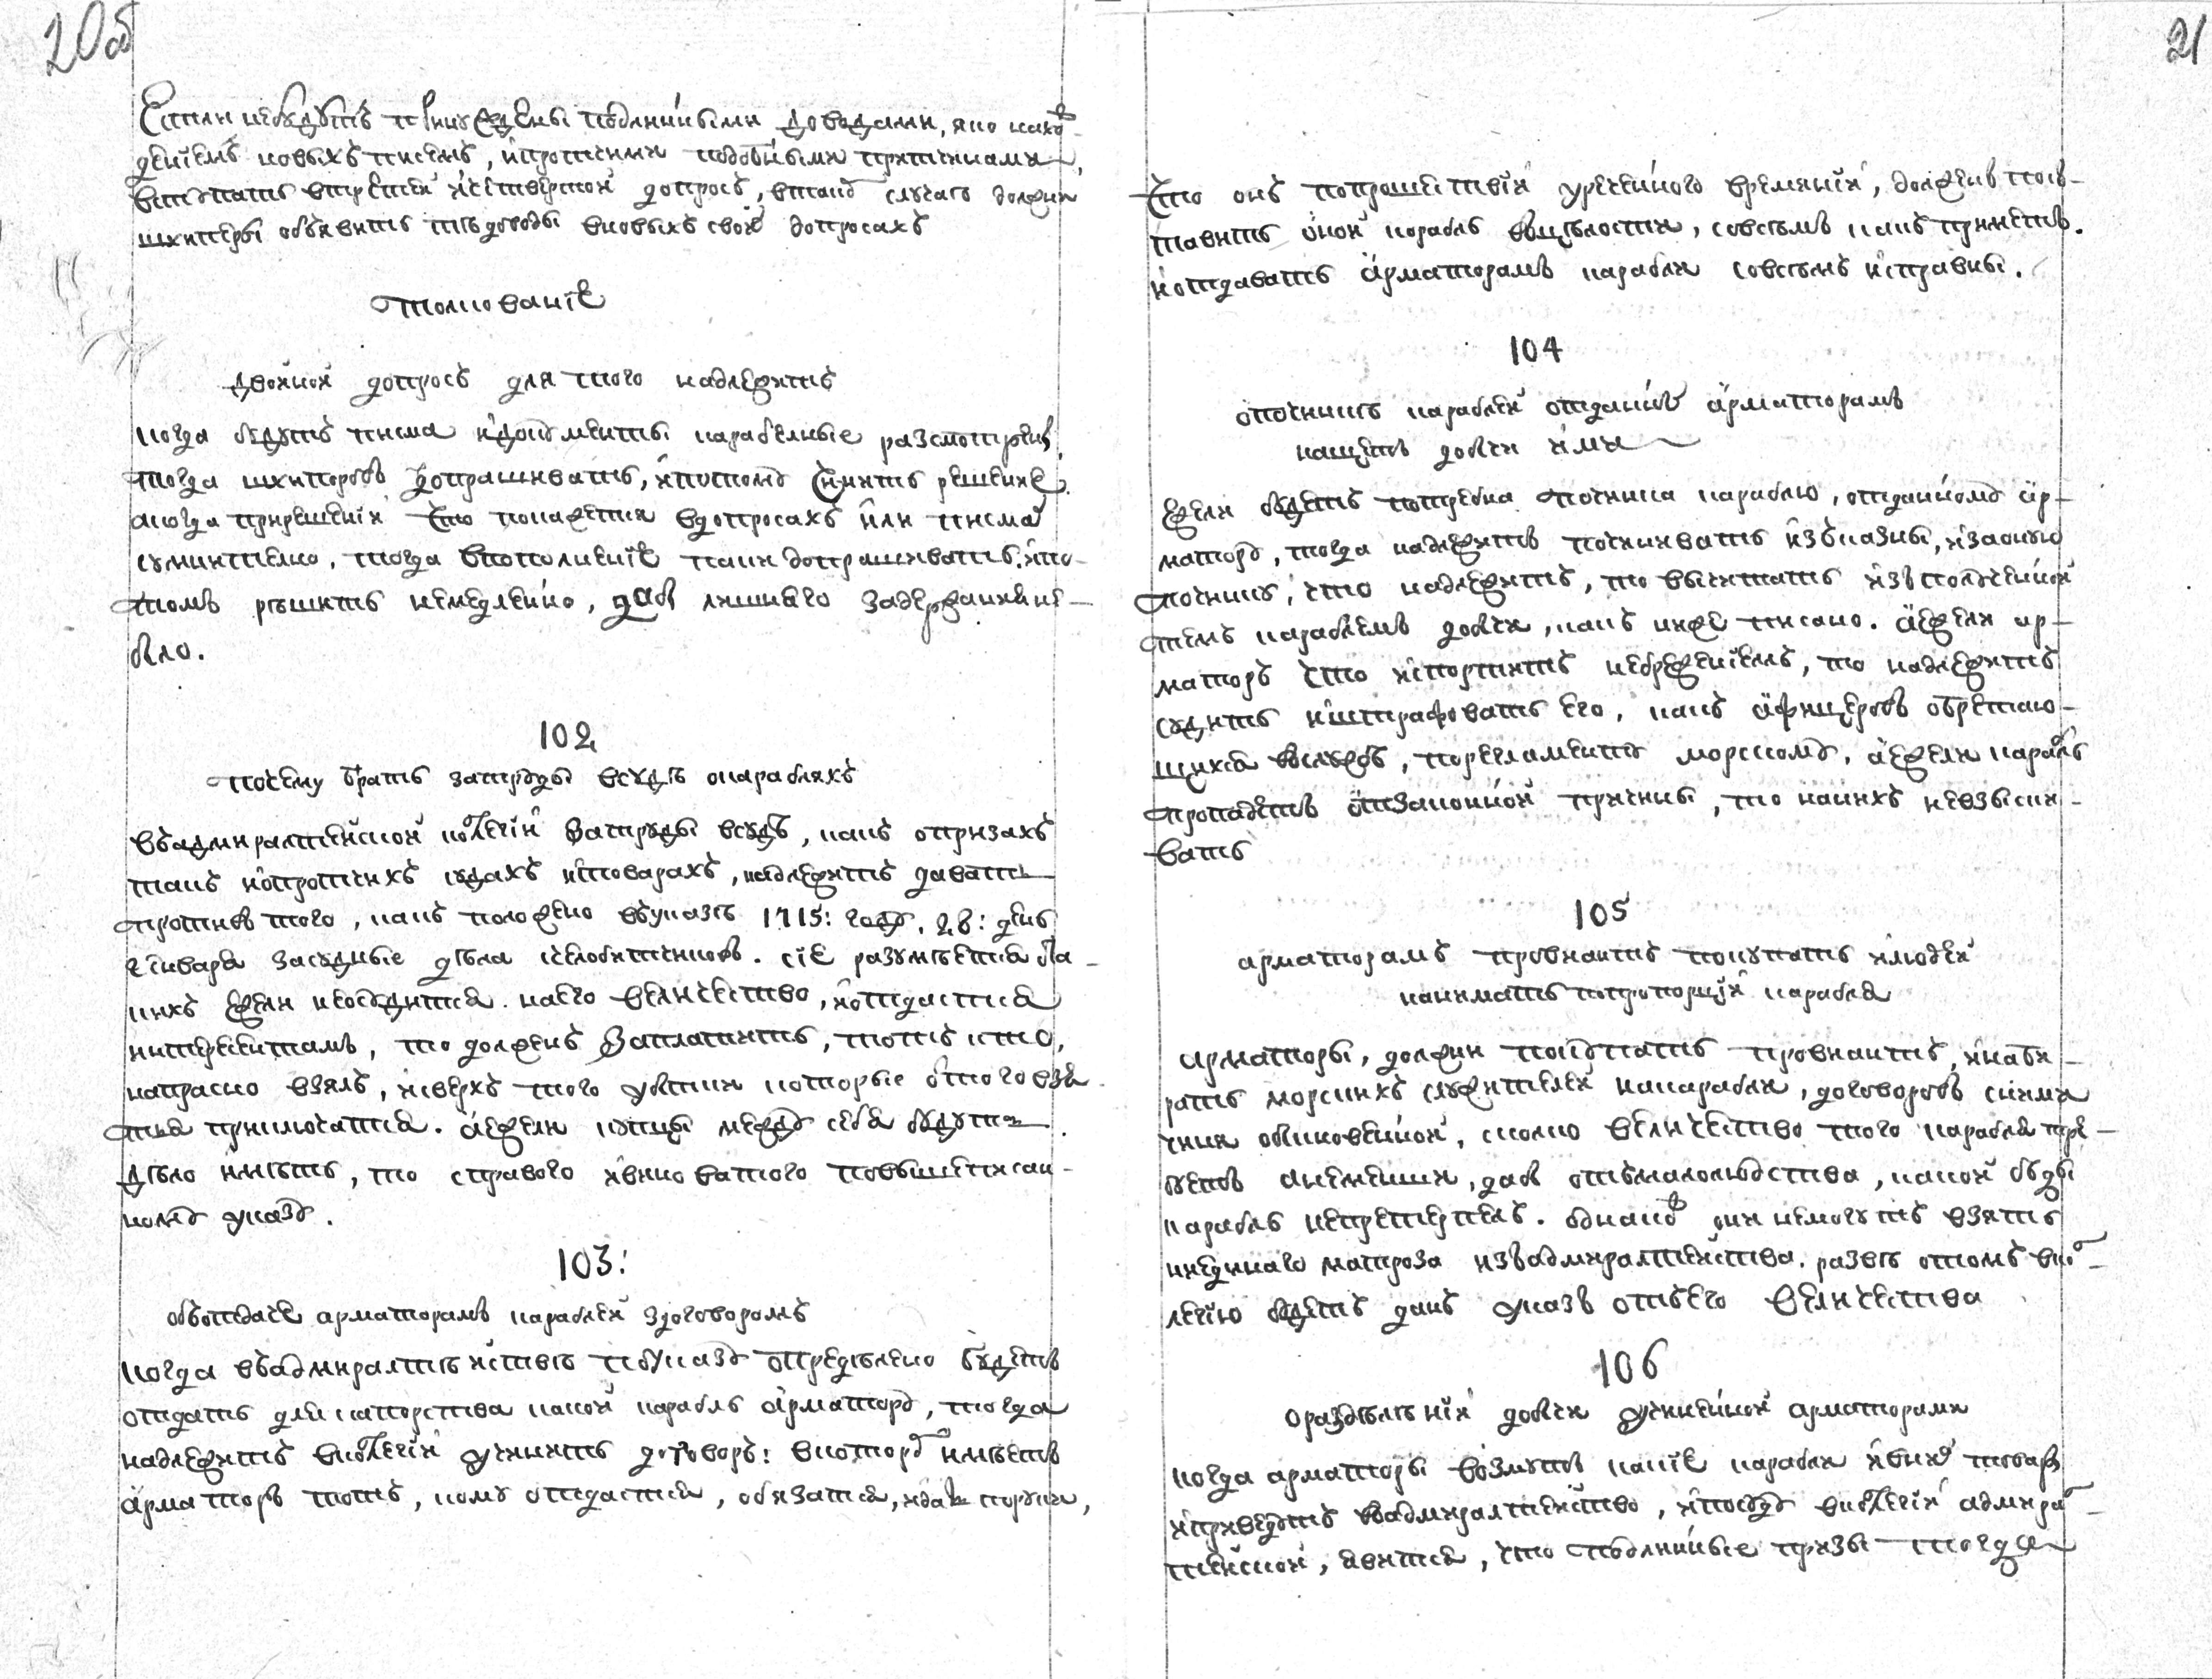 20об
Естли небудутъ принуждены подлинными доводами, яко нахо
деніемъ новыхъ писемъ, ипротчими подобными притчинами,
вступать втретей ичетвертой допросъ, втакомъ случаю должны
шкипоры объявить тѣ доводы вновыхъ своих допросахъ
толкованіе
двойной допросъ для того надлежитъ
когда будутъ писма идокументы карабелные разсмотрены,
тогда шкипоровъ допрашивать, ипотому чинить решение.
акогда прирешеніи что покажется вдопросахъ или писмах
сумнително, тогда впополненіе паки допрашивать. ипо-
томъ рѣшить немедленно, дабы лишняго задержания не-
было.
102
почему брать затруды всудѣ окарабляхъ
Въадмиралтейской колегіи затруды всудѣ, какъ опризахъ
такъ ипротчихъ судахъ итоварахъ, надлежитъ давать
противъ того, какъ положено въуказѣ 1715: году. 28: день
генваря засудные дѣла счелобитчиковъ. сіе разумѣется ота-
кихъ ежели неосудится. наего величество, иотдастся
интересентамъ, то долженъ заплатить, тотъ кто,
напрасно взялъ, исверхъ того убытки которые отого взя
тья приключатся. аежели купцы между себя будутъ
дѣло имѣть, то справого ивиноватого повышеписан-
ному указу.
103:
объотдаче арматорамъ караблей здоговоромъ
Когда въадмиралтѣйствѣ поуказу опредѣлено будетъ
отдать для каторства какой карабль арматору, тогда
надлежитъ вколегіи учинить договоръ: вкоторомъ имѣетъ
арматоръ тотъ, кому отдастся, обязатся, идать поруки,
21
Что онъ попрошествіи уреченного времяни, долженъ пос-
тавить оной карабль въцѣлости, совсѣмъ какъ приметъ.
иотдавать арматорамъ карабли совсѣмъ исправны.
104
опочинкѣ караблей отданныхъ арматорамъ
нащетъ добычи ими
Ежели будетъ потребна починка караблю, отданному ар-
матору, тогда надлежитъ починивать изъказны, изаоную
починку, что надлежитъ, то вычитать изъполученной
темъ караблемъ добычи, какъ ниже писано. аежели ар-
маторъ что испортитъ небрежениемъ, то надлежитъ
судить иштрафовать его, какъ афицеровъ обретаю-
щихся вслужбѣ, порегламенту морскому. аежели карабль
пропадетъ отзаконной причины, то наихъ невзыски-
вать
105
арматорамъ провиантъ покупать илюдей
нанимать попропорціи карабля
Арматоры, должни покупать провиантъ, инаби-
рать морскихъ служителей накарабли, договоровъ сними
чиня обыкновенной, сколко величество того карабля тре-
буетъ анеменши, дабы отъмалолюдства, какой беды
карабль непретерпелъ. однакожъ они немогутъ взять
ниединаго матроза изъадмиралтейства. развѣ отомъ вко
легію будетъ данъ указъ отъего величества
106
ораздѣлѣніи добычи учиненной арматорами
Когда арматоры возмутъ какіе карабли ивних товары
иприведутъ въадмиралтейство, ипосуду вколегіи адмирал
тейской, явится, что подлинные призы тогда